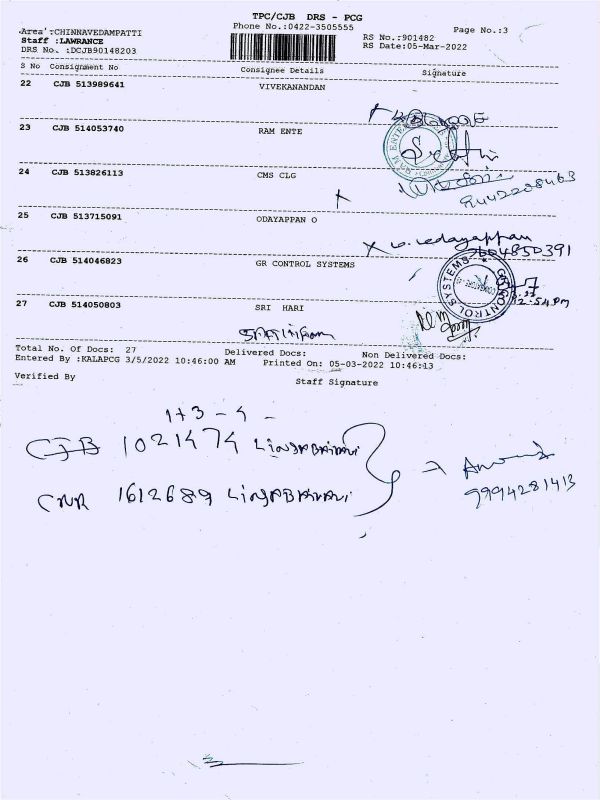 TPC/CJB DRS - PCG
Area :CHINNAVEDAMPATTI
Phone No.:0422-3505555
Page No.:3
Staff :LAWRANCE
RS No.:901482
DRS No. :DCJB90148203
RS Date:05-Mar-2022
S No Consignment No Consignee Details Signature
22 CJB 513989641 VIVEKANANDAN
23 CJB 514053740 RAM ENTE
24 CJB 513826113 CMS CLG
25 CJB 513715091 ODAYAPPAN O
26 CJB 514046823 GR CONTROL SYSTEMS
27 CJB 514050803 SRI HARI
Total No. Of Docs: 27 Delivered Docs: Non Delivered Docs:
Entered By :KALAPCG 3/5/2022 10:46:00 AM Printed On: 05-03-2022 10:46:13
Verified By
Staff Signature
1+3 - 4 -
CJB 1021474
1612689
9994281413